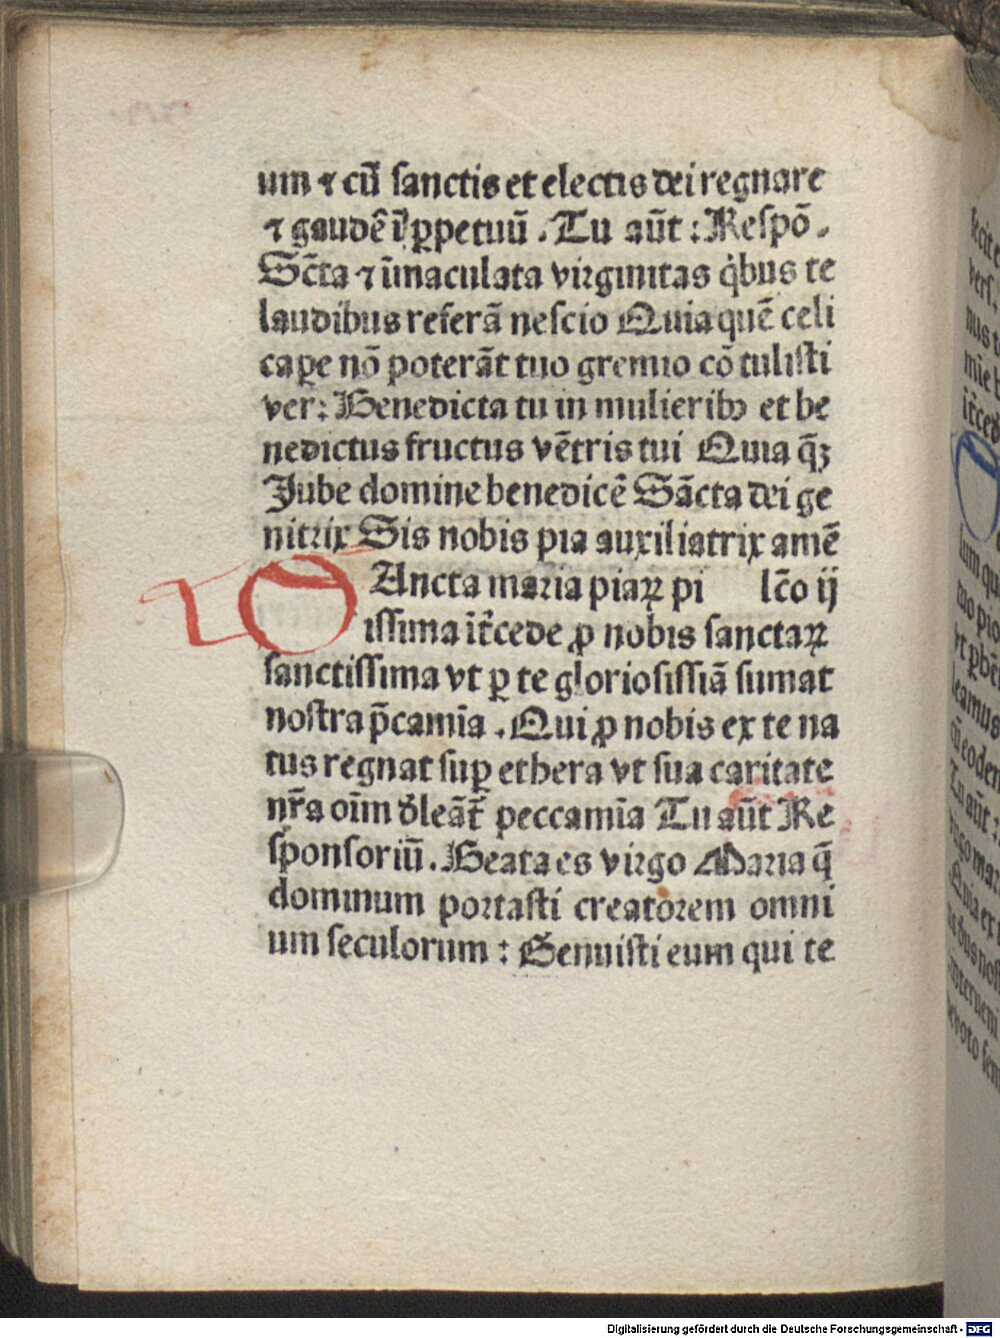 um ⁊ cū sanctis et electis dei regnare
⁊ gaudē ī ꝑpetuū . Tu aūt : Respō .
Sc̄ta ⁊ īmaculata virginitas q̇bus te
laudibus referā nescio Quia quē celi
caꝑe nō poterāt tuo gremio cō tulisti
ver: Benedicta tu in mulieribꝫ et be
nedictus fructus vētris tui Quia q̄ꝫ
Jube domine benedicē Sācta dei ge
nitrix Sis nobis pia auxiliatrix amē
SAncta maria piaꝝ pi lc̄o ij
issima īt̄cede ꝓ nobis sanctaꝝ
sanctissima vt ꝑ te gloriosissiā sumat
nostra p̄camīa . Qui ꝓ nobis ex te na
tus regnat suꝑ ethera vt sua caritate
nr̄a oīm deleāt̄ peccamīa Tu aūt Re
sponsoriū . Beata es virgo Maria q̄
dominum portasti creatorem omni
um seculorum : Genuisti eum qui te
Digitalisierung gefördert durch die Deutsche Forschungsgemeinschaft - DFG